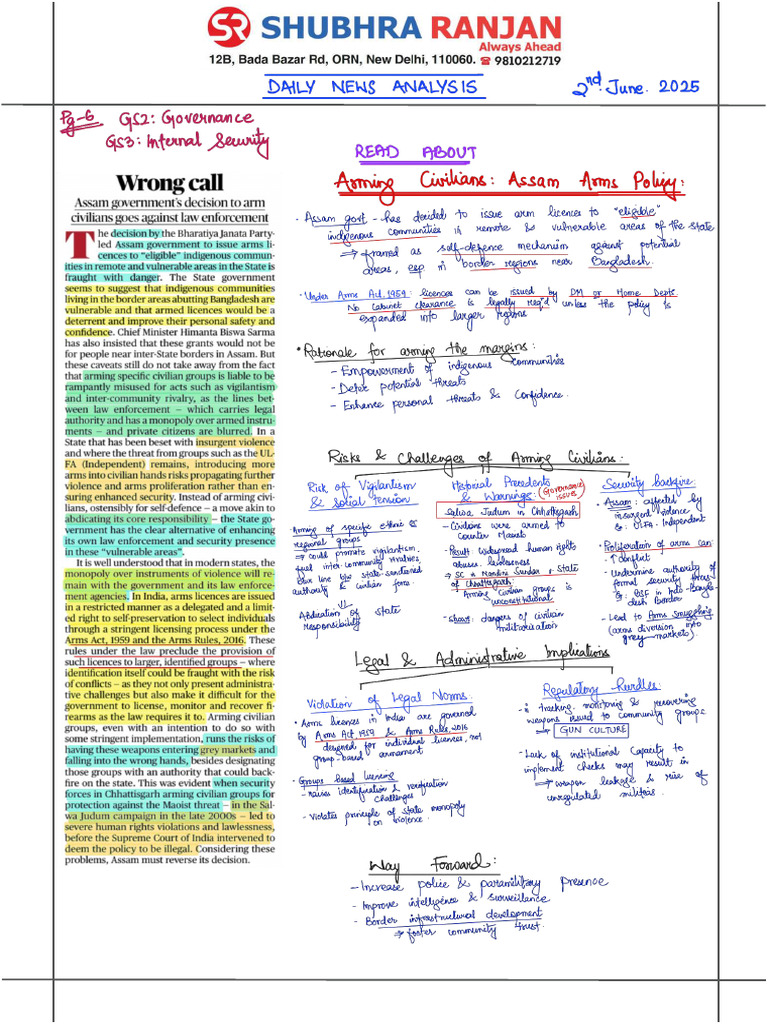 SR SHUBHRA RANJAN
Always Ahead
12B, Bada Bazar Rd, ORN, New Delhi, 110060. ☎ 9810212719
DAILY NEWS ANALYSIS
2nd June. 2025
Pg-6 GS2: Governance
GS3: Internal Security
Wrong call
Assam government's decision to arm
civilians goes against law enforcement
The decision by the Bharatiya Janata Party-
led Assam government to issue arms li-
cences to "eligible" indigenous commun-
ities in remote and vulnerable areas in the State is
fraught with danger. The State government
seems to suggest that indigenous communities
living in the border areas abutting Bangladesh are
vulnerable and that armed licences would be a
deterrent and improve their personal safety and
confidence. Chief Minister Himanta Biswa Sarma
has also insisted that these grants would not be
for people near inter-State borders in Assam. But
these caveats still do not take away from the fact
that arming specific civilian groups is liable to be
rampantly misused for acts such as vigilantism
and inter-community rivalry, as the lines bet-
ween law enforcement – which carries legal
authority and has a monopoly over armed instru-
ments – and private citizens are blurred. In a
State that has been beset with insurgent violence
and where the threat from groups such as the UL-
FA (Independent) remains, introducing more
arms into civilian hands risks propagating further
violence and arms proliferation rather than en-
suring enhanced security. Instead of arming civi-
lians, ostensibly for self-defence – a move akin to
abdicating its core responsibility – the State go-
vernment has the clear alternative of enhancing
its own law enforcement and security presence
in these "vulnerable areas".
It is well understood that in modern states, the
monopoly over instruments of violence will re-
main with the government and its law enforce-
ment agencies. In India, arms licences are issued
in a restricted manner as a delegated and a limit-
ed right to self-preservation to select individuals
through a stringent licensing process under the
Arms Act, 1959 and the Arms Rules, 2016. These
rules under the law preclude the provision of
such licences to larger, identified groups – where
identification itself could be fraught with the risk
of conflicts – as they not only present administra-
tive challenges but also make it difficult for the
government to license, monitor and recover fi-
rearms as the law requires it to. Arming civilian
groups, even with an intention to do so with
some stringent implementation, runs the risks of
having these weapons entering grey markets and
falling into the wrong hands, besides designating
those groups with an authority that could back-
fire on the state. This was evident when security
forces in Chhattisgarh arming civilian groups for
protection against the Maoist threat – in the Sal-
wa Judum campaign in the late 2000s – led to
severe human rights violations and lawlessness,
before the Supreme Court of India intervened to
deem the policy to be illegal. Considering these
problems, Assam must reverse its decision.
READ ABOUT
Arming Civilians: Assam Arms Policy:
· Assam govt - has decided to issue arm licences to "eligible"
indigenous communities in remote & vulnerable areas of the state
⇒ framed as self-defence mechanism against potential
areas, esp in border regions near Bangladesh.
· Under Arms Act, 1959: licences can be issued by DM or Home Depts.
No Cabinet clearance is legally req'd unless the policy is
expanded into larger regions
• Rationale for arming the margins:
- Empowerment of indigenous communities
- Deter potential threats
- Enhance personal threats & Confidence.
Risks & Challenges of Arming Civilians:
Risk of Vigilantism
& Social Tension
Arming of specific ethnic &
regional groups
⇒ could promote vigilantism,
fuel inter-community rivalries,
blur line b/w state-sanctioned
authority & civilian force.
Abdication of state
responsibility
Historial Precedents
& Warnings: (Governance issues)
Salwa Judum in Chhattisgarh
- Civilians were armed to
counter Maoists
- Result: widespread human rights
abuses, lawlessness
⇒ SC in Nandini Sundar v. State
of Chhattisgarh:
Arming Civilian groups is
unconstitutional
- Shows: dangers of civilian
militarisation
Security backfire:
- Assam: affected by
insurgent violence
Eg: ULFA - Independent
- Proliferation of arms can:
↑ Conflict
- Undermine authority of
formal security forces
Eg: BSF in Indo-Bangla-
desh Border
- Lead to Arms Smuggling
(arms diversion into
grey-markets).
Legal & Administrative Implications
Violation of Legal Norms.
• Arms licences in India are governed
by Arms Act, 1959 & Arms Rules, 2016
designed for individual licenses, not
group-based armament
- Groups based licensing
- raises identification & verification
challenges
- Violates principle of state monopoly
on violence.
Regulatory Hurdles:
- in tracking, monitoring & recovering
weapons issued to community groups
⇒ GUN CULTURE
- Lack of institutional Capacity to
implement checks may result in
⇒ weapon leakage & rise of
unregulated militias.
Way Forward:
- Increase police & paramilitary presence
- Improve intelligence & surveillance
- Border infrastructural development
⇒ foster community trust.